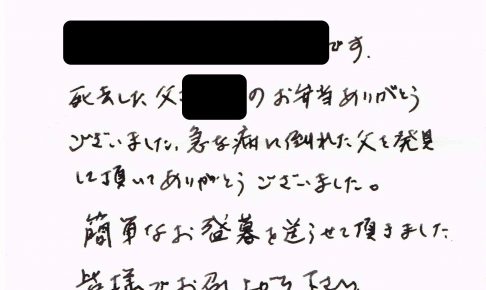 です.
死去した父 のお弁当ありがとう
ございました、急な病に倒れた父を発見
して頂いてありがとうございました。
簡単なお登墓を送らせて頂きました
皆様でお召し上がり下さい